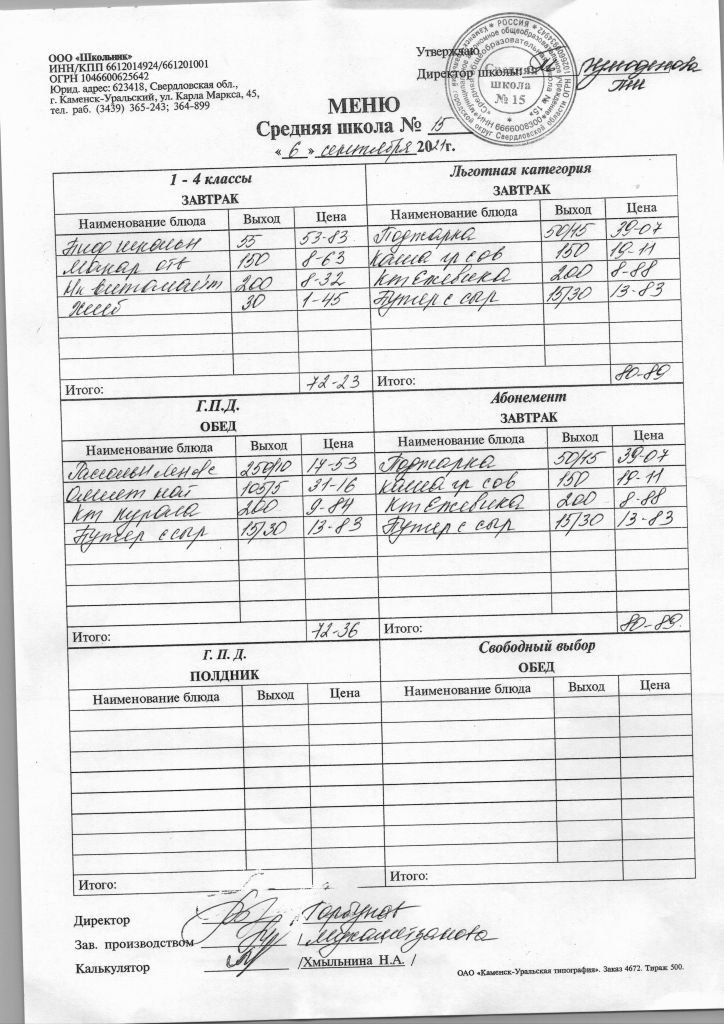 ООО «Школьник»
ИНН/КПП 6612014924/661201001
ОГРН 1046600625642
Юрид. адрес: 623418, Свердловская обл.,
г. Каменск-Уральский, ул. Карла Маркса, 45,
тел. раб. (3439) 365-243; 364-899
Утверждаю
Директор школы
Средняя
школа
№ 15
МЕНЮ
Средняя школа № 15
« 6 » сентября 2021г.
1 - 4 классы Льготная категория
ЗАВТРАК ЗАВТРАК
Наименование блюда Выход Цена Наименование блюда Выход Цена
55 53-83 Поджарка 50/45 39-07
Макар отв 150 8-63 Каша гр сов 150 19-11
200 8-32 Кт Ежевика 200 8-88
Хлеб 30 1-45 Бутер с сыр 15/30 13-83
Итого: 72-23 Итого: 80-89
Г.П.Д. Абонемент
ОБЕД ЗАВТРАК
Наименование блюда Выход Цена Наименование блюда Выход Цена
250/10 17-53 Поджарка 50/45 39-07
Омлет нат 105/5 31-16 Каша гр сов 150 19-11
Кт 200 9-84 Кт Ежевика 200 8-88
Бутер с сыр 15/30 13-83 Бутер с сыр 15/30 13-83
Итого: 72-36 Итого: 80-89
Г. П. Д. Свободный выбор
ПОЛДНИК ОБЕД
Наименование блюда Выход Цена Наименование блюда Выход Цена
Итого: Итого:
Директор
Зав. производством
Калькулятор /Хмыльнина Н.А. /
ОАО «Каменск-Уральская типография». Заказ 4672. Тираж 500.